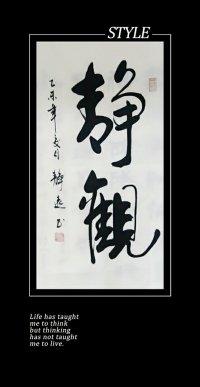 STYLE
静觀
乙未年夏月
静远书
Life has taught
me to think
but thinking
has not taught
me to live.